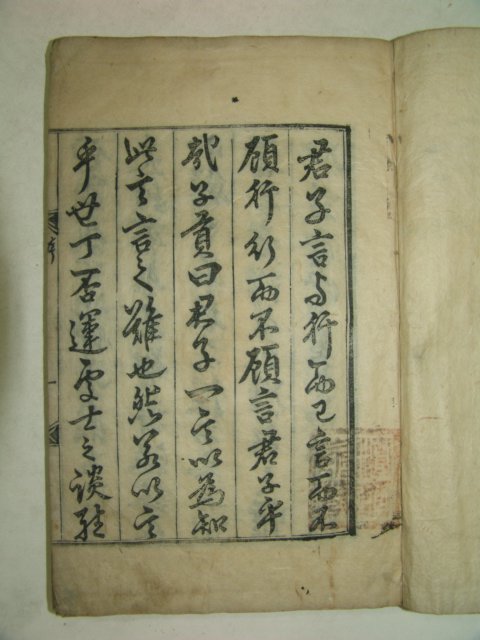 君子言与行而已言而不
顾行行而不顾言君子乎
哉子貢曰君子一言以為知
此立言之難也然若以言
乎世丁否運處士之談
序